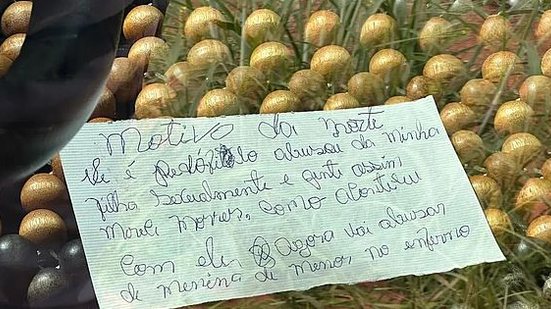 Motivo da morte
ele é pedofilo abusou da minha
filha sexualmente e gente assim
merece morrer, como aconteceu
com ele Agora vai abusar
de menina de menor no inferno